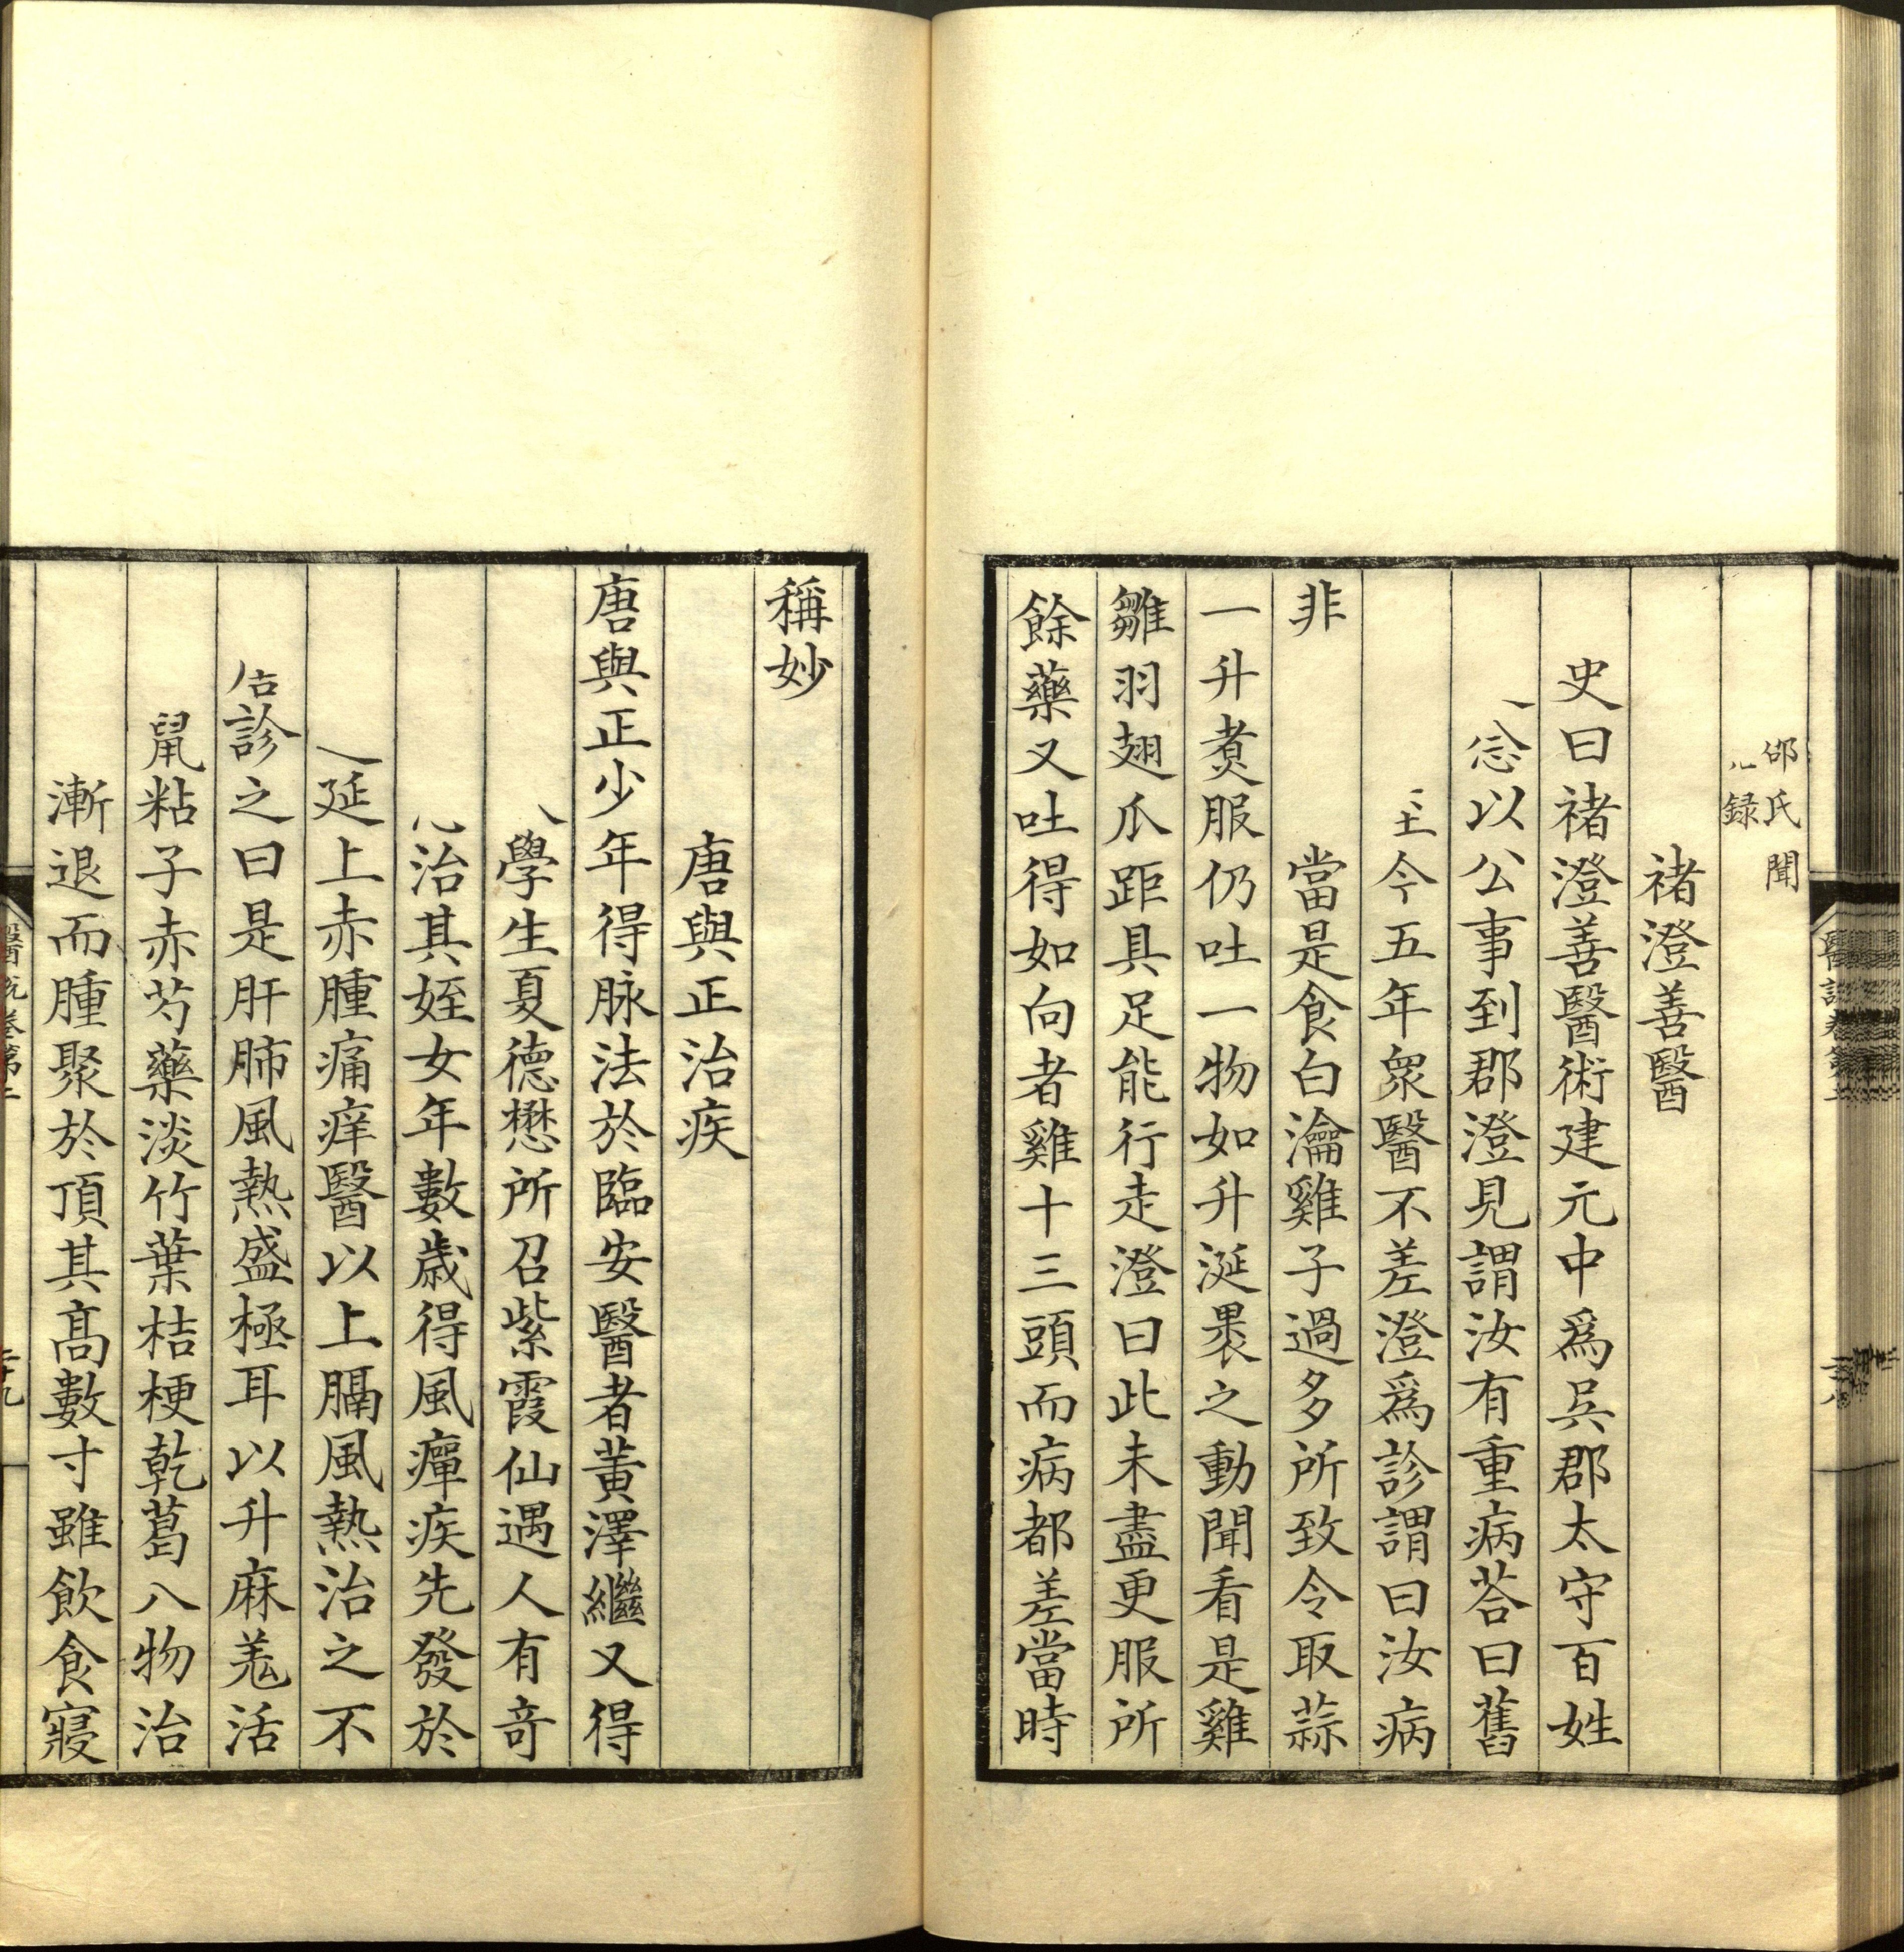 邵氏聞
録
褚澄善醫
史曰褚澄善醫術建元中爲吳郡太守百姓
以公事到郡澄見謂汝有重病荅曰舊
今五年衆醫不差澄爲診謂曰汝病
非
當是食白瀹雞子過多所致令取蒜
一升煑服仍吐一物如升涎裹之動聞看是雞
雛羽翅爪距具足能行走澄曰此未盡更服所
餘藥又吐得如向者雞十三頭而病都差當時
稱妙
唐與正治疾
唐與正少年得脉法於臨安醫者黃澤繼又得
學生夏德懋所召紫霞仙遇人有竒
治其姪女年數歲得風癉疾先發於
延上赤腫痛痒醫以上膈風熱治之不
診之曰是肝肺風熱盛極耳以升麻羗活
鼠粘子赤芍藥淡竹葉桔梗乾葛八物治
漸退而腫聚於頂其髙數寸雖飲食寢